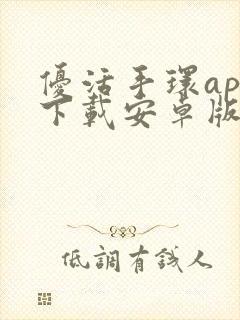 優活手環ap
下載安卓版
低調有錢人